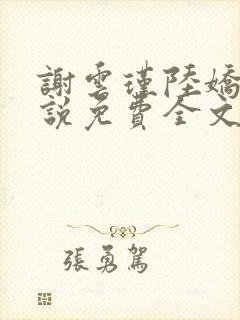 謝雲瑾陸嬌
說免費全文
張勇駕